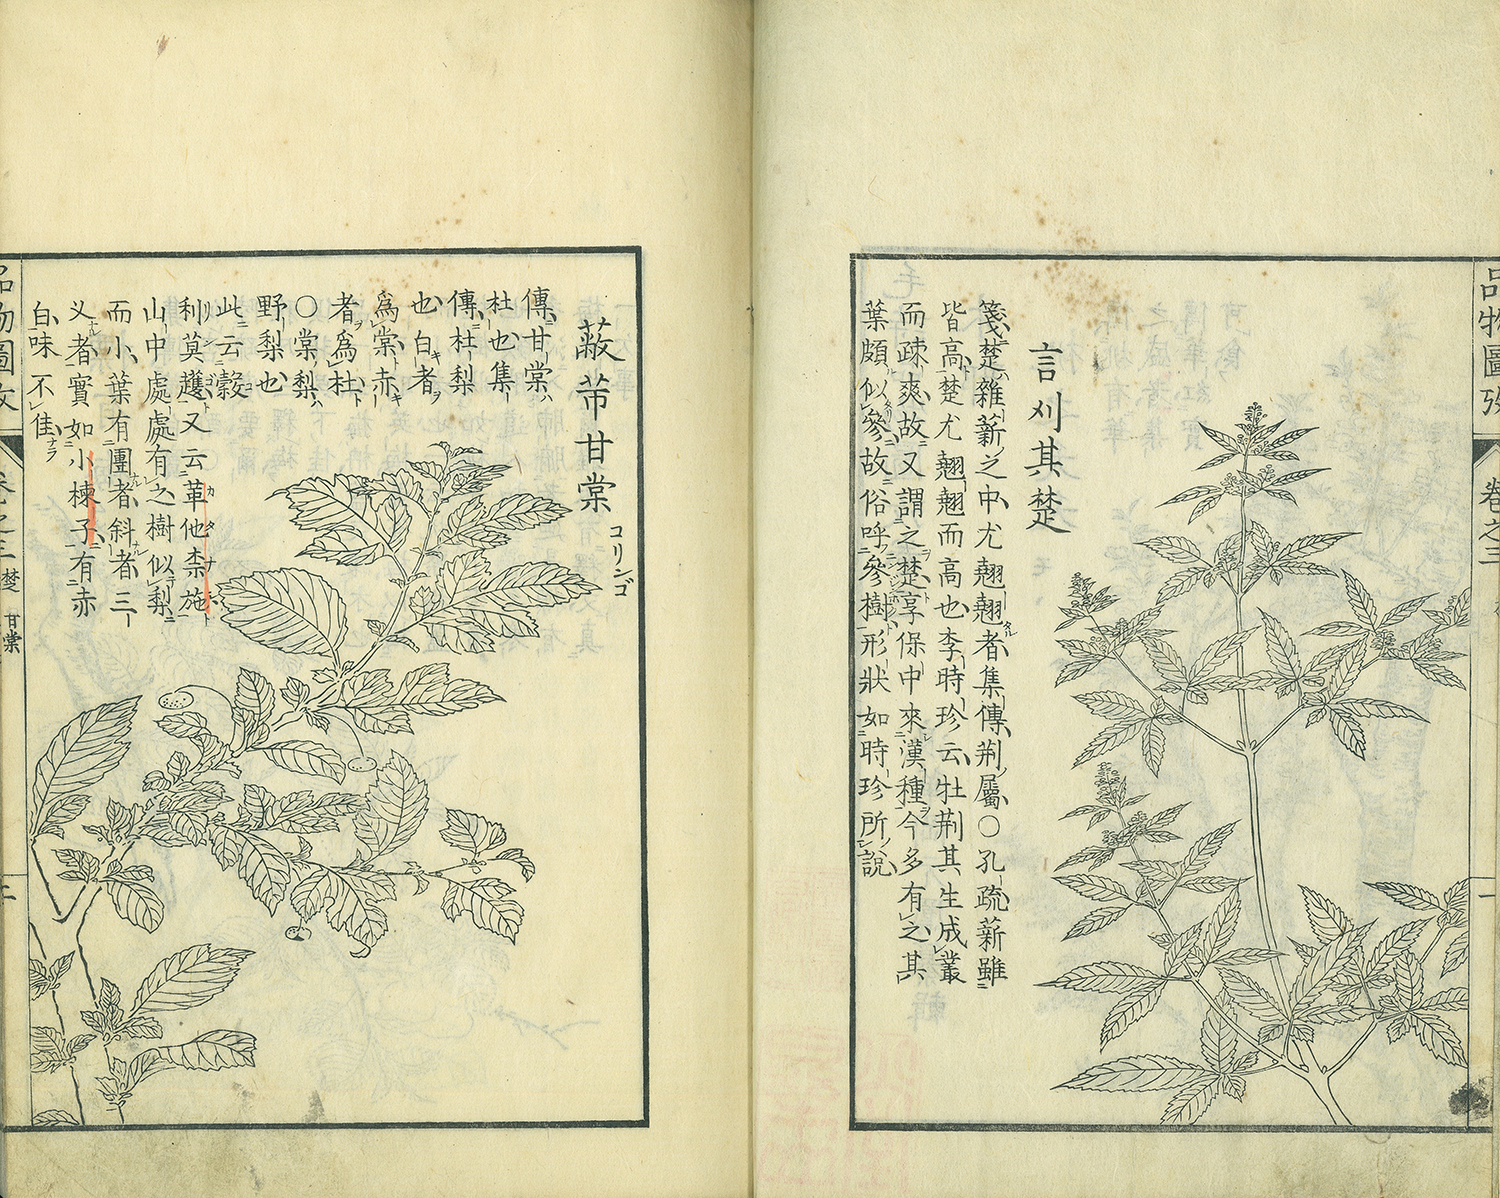 言刈其楚
箋楚雜薪之中尤翹翹者集傳荆屬〇孔疏薪雖
皆高楚尤翹翹而高也李時珍云牡荆其生成叢
而疎爽故又謂之楚享保中來漢種今多有之其
葉頗似參故俗呼參樹形狀如時珍所說
蔽芾甘棠
コリンゴ
傳甘棠
杜也集
傳杜梨
也白者
爲棠赤
者爲杜
〇棠梨
野梨也
此云
利莫又云革他柰施
山中處處有之樹似梨
而小葉有團者斜者三
义者實如小楝子有赤
白味不佳
品物圖攷
卷之三
楚
甘棠
二
品物圖攷
卷之三
一